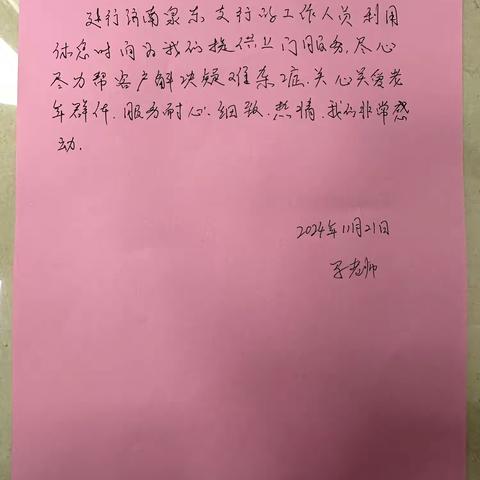 建行济南泉东支行的工作人员利用
休息时间为我们提供上门服务,尽心
尽力帮客户解决疑难杂症,关心关爱老
年群体,服务耐心、细致、热情,我们非常感
动。
2024年11月21日
老师